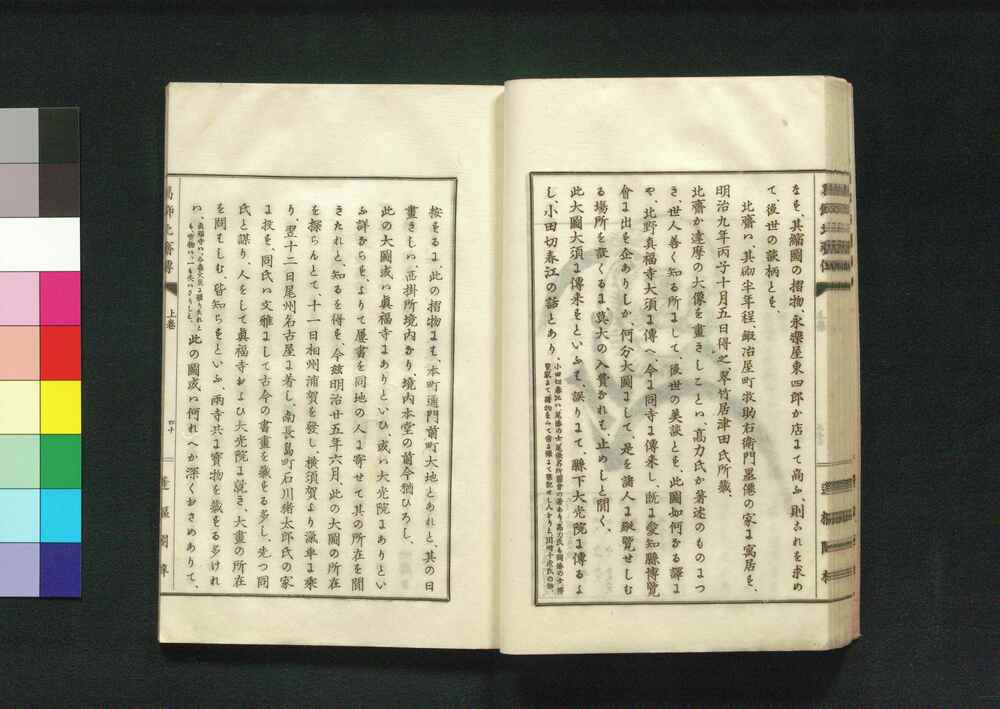 なを、其縮圖の摺物、永樂屋東四郎か店まて高ふ、則ちこれを求め
て、後世の談柄とを、
北齋ハ、其砌半年程、鍛冶屋町救助右衛門墨僊の家ま寓居を、
明治九年丙子十月五日得之、翠竹居津田氏所藏、
北齋か達摩の大像を畫きしことハ、高力氏か著述のものまつ
き、世人善く知る所まして、後世の美談とを、此圖如何なる譯ま
や、北野真福寺大須ま傳へ、今ま同寺ま傳来し、既ま愛知縣博覽
會ま出を企ありしか、何分大圖まして、是を諸人ま縦覽せしむ
る場所を設くるま莫大の入費かれも、止めしと聞く、
此大圖大須ま傳来をといふも、誤りまて、縣下大光院ま傳るよ
し、小田切春江の話とあり、
按をるま、此の摺物まも、本町通門前町大地とあれと、其の日
畫きしハ、西掛所境内なり、境内本堂の前今猶ひろし、
此の大圖或ハ眞福寺まありといひ、或ハ大光院まありとい
ふ詳ならを、よりて屢書を同地の人ま寄せて其の所在を聞
きたれと、知るを得を、今玆明治廿五年六月、此の大圖の所在
を探らんとて、十一日相州浦賀を發し、横須賀より滊車ま乗
り、翌十二日尾州名古屋ま着し、南長島町石川猪太郎氏の家
ま投を、同氏ハ文雅まして古今の書畫を藏をる多し、先つ同
氏と謀り、人をして眞福寺および大光院ま就き、大畫の所在
を問もしむ、皆知らをといふ、兩寺共ま寳物を藏をる多けれ
ハ、此の圖或ハ何れへか深くおさめありて、
上卷
四十